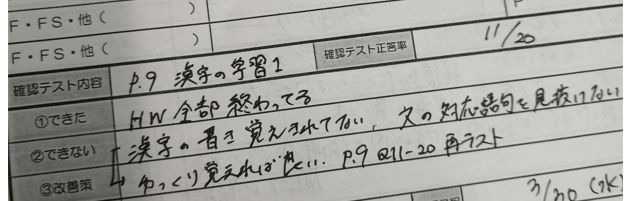 F・FS・他（　　　）
F・FS・他（　　　）
確認テスト内容 P.9 漢字の学習1 確認テスト正答率 11/20
①できた HW全部終わってる
②できない 漢字の書き覚えきれてない、文の対応語句を見抜けない
③改善策 ゆっくり覚えれば良い... P.9 ⑪-20 再テスト
3/30 (水)